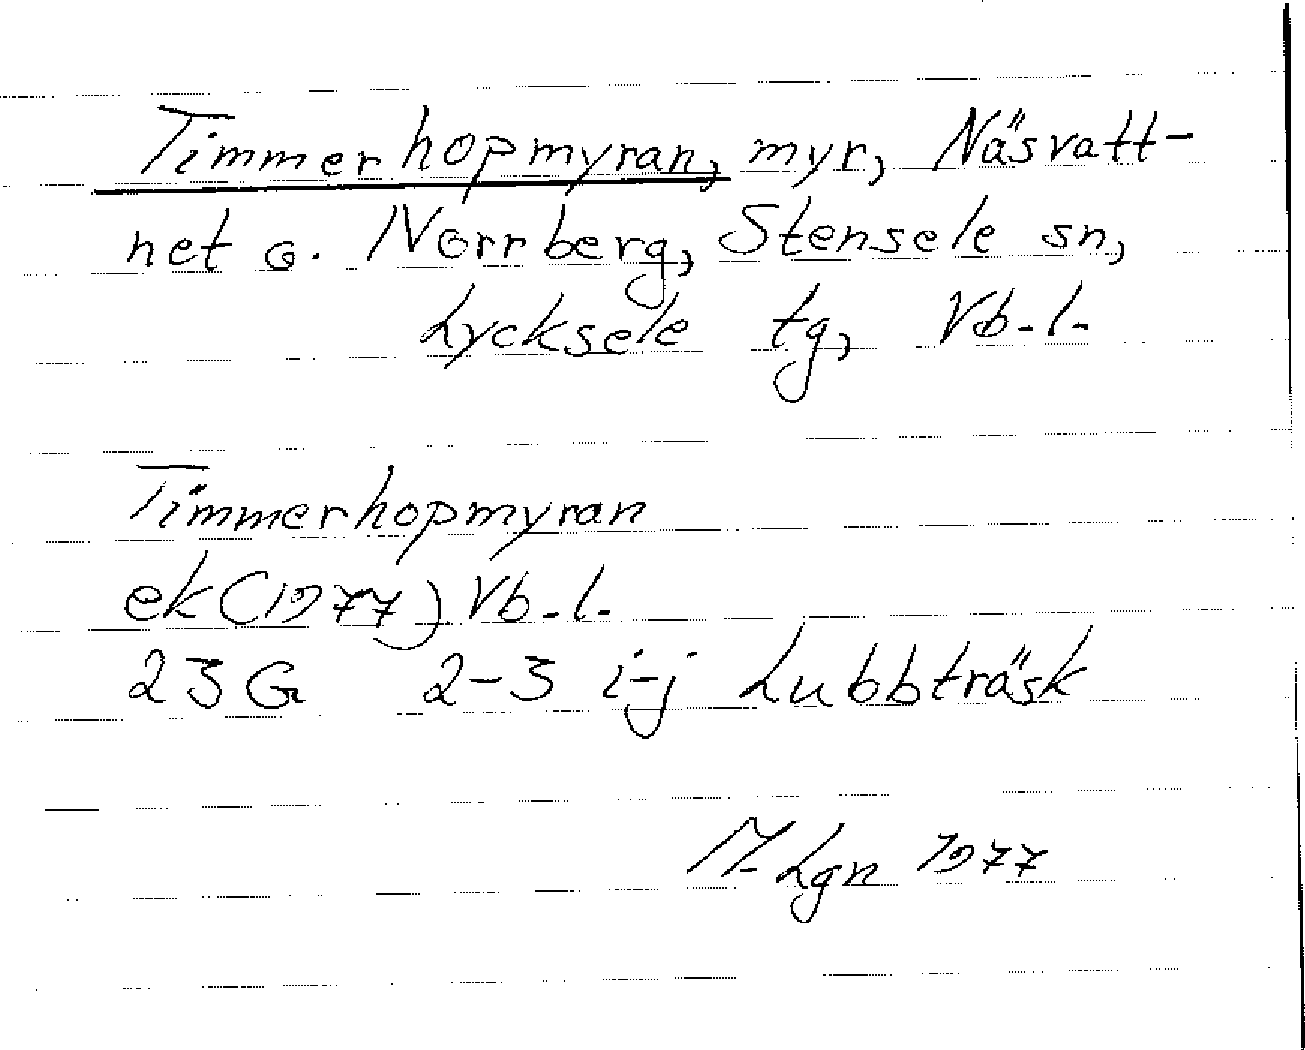 Timmerhopmyran, myr, Näsvatt-
net o. Norrberg, Stensele sn,
Lycksele tg, Vb.l.
Timmerhopmyran
ek (1977) Vb.l.
23G 2-3 i-j Lubbträsk
M. Lgn 1977